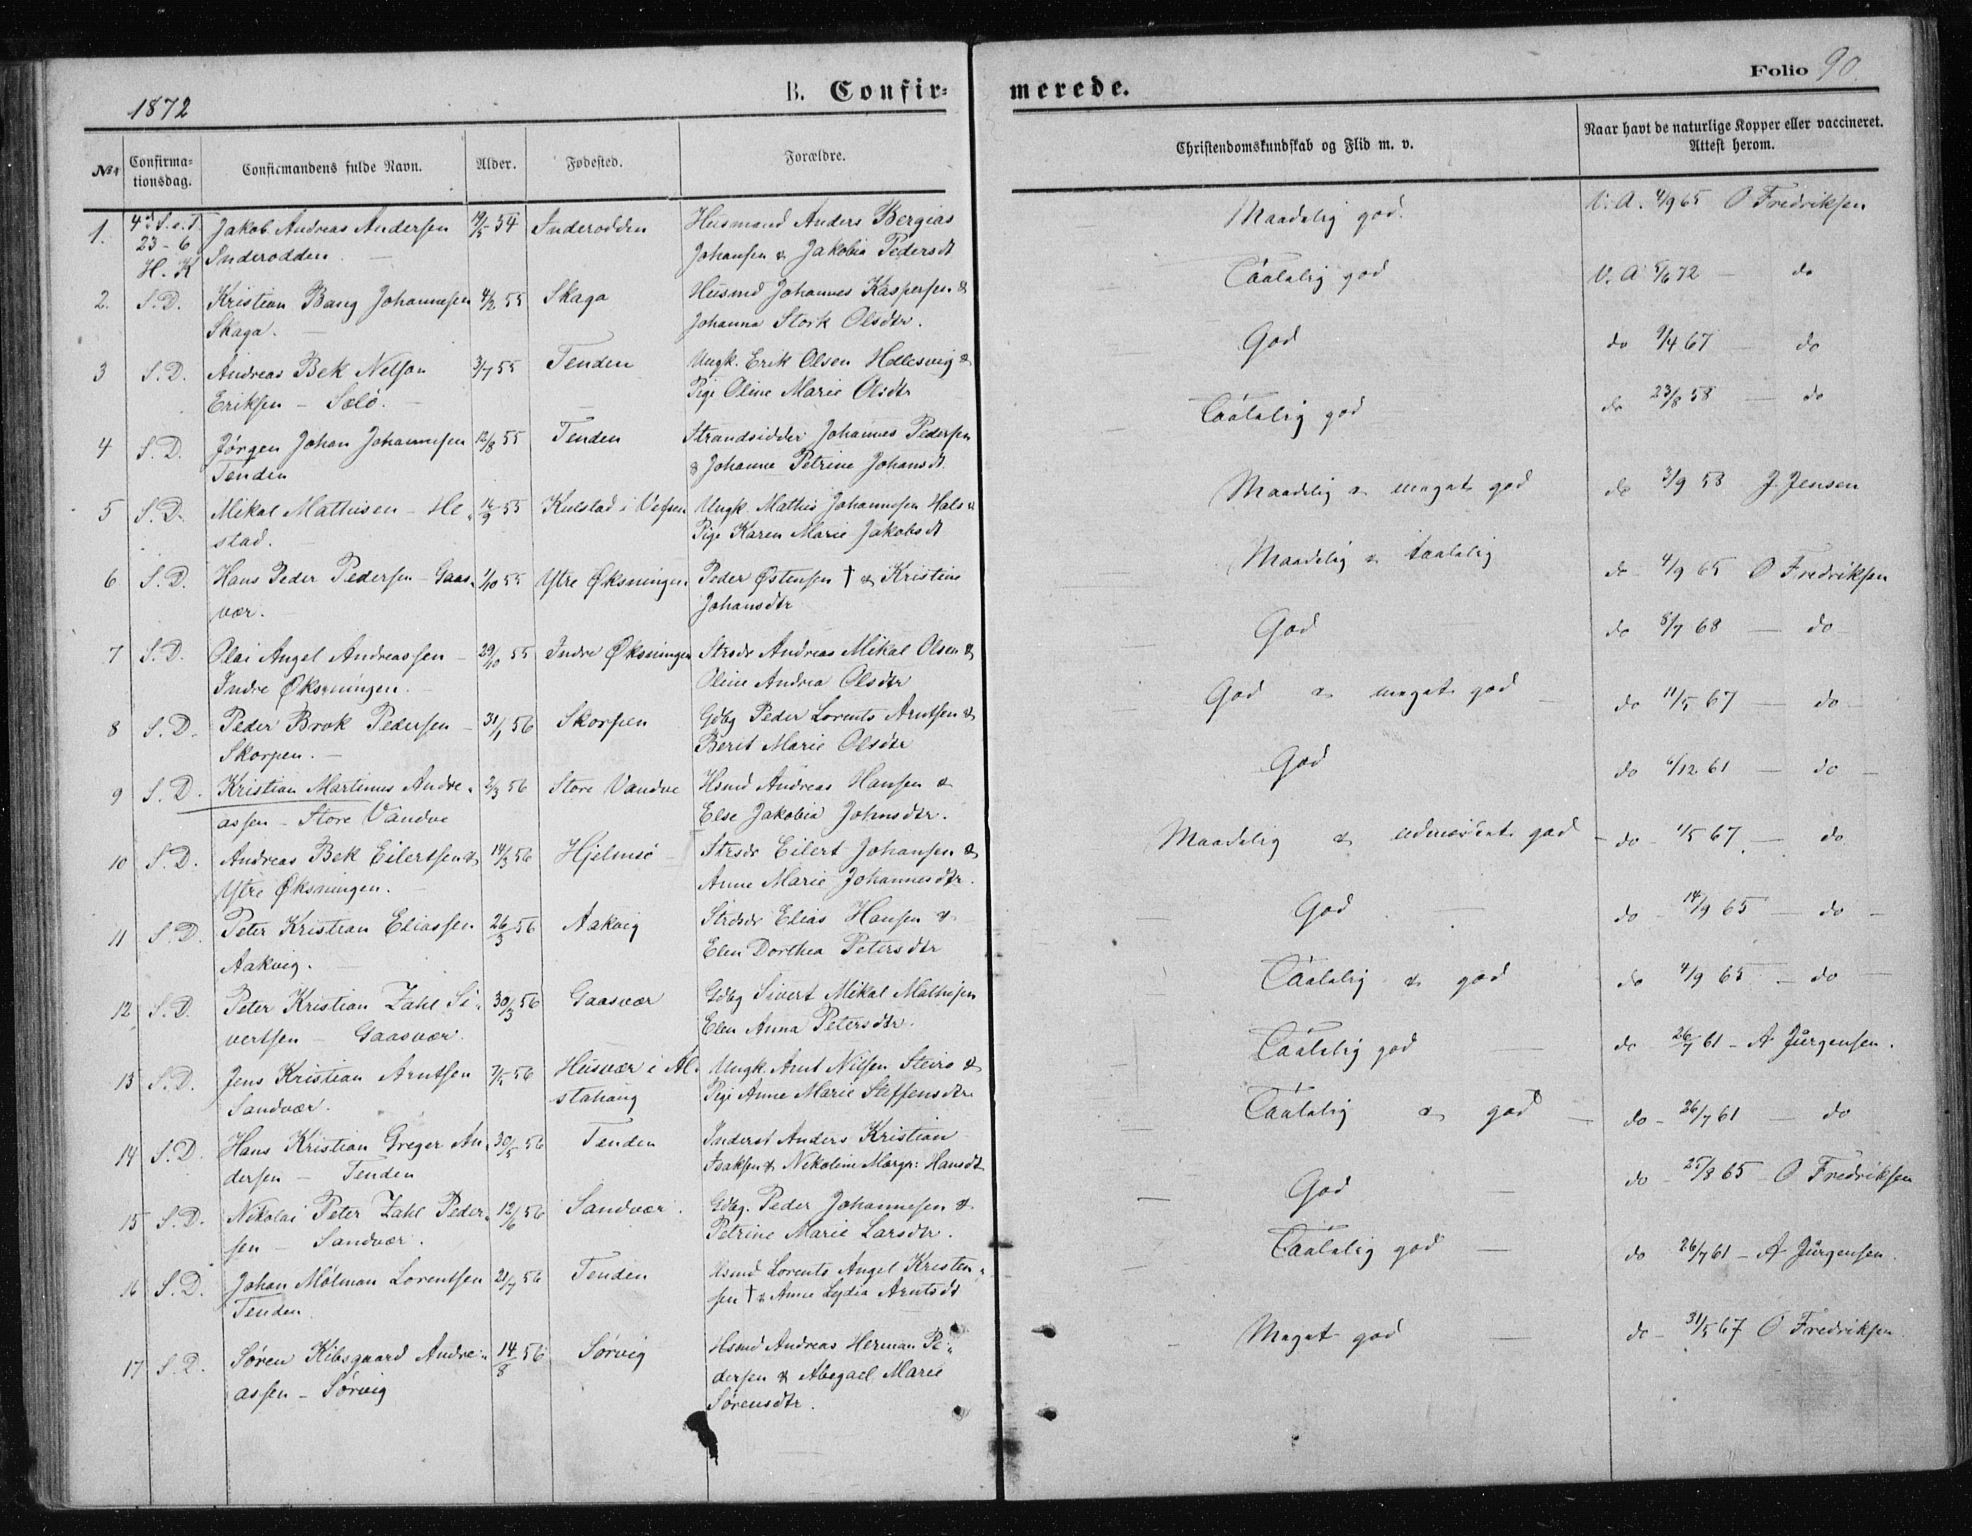 1872
B. Confir-
merede.
Folio 90.
No
Confirma-
tionsdag.
Confirmandens fulde Navn.
Alder.
Fødested.
Forældre.
Christendomskundskab og Flid m. v.
Naar havt de naturlige Kopper eller vaccineret.
Attest herom.
1. 4d S.e.T. Jakob Andreas Andersen 54 Inderodden Husmand Anders Bergias Maadelig god. V. A. 4/9 65 O Fredriksen
23-6 Inderodden. Johansen & Jakobia Pedersdt
H. K
2. S.D. Kristian Bang Johannesen 4/2 55 Skaga Husmd Johannes Kaspersen & Taalelig god V. A 5/6 72 — do
Skaga. Johanna Stork Olsdtr.
3 S.D. Andreas Bek Nelson 3/7 55 Tenden Ungk. Erik Olsen Hellesvig & God do 9/4 67 — do
Eriksen — Sølø. Pige Oline Marie Olsdtr
4 S.D. Jørgen Johan Johannesen 12/8 55 Tenden Strandsidder Johannes Pedersen Taalelig god do 23/8 58 — do
Tenden & Johanne Petrine Johansdt.
5 S.D. Mikal Mathisen — He- 55 Kulstad i Vefsen Ungk Mathis Johannesen Hals & Maadelig & meget god do 3/9 58 J. Jensen
stad. Pige Karen Marie Jakobsdt
6 S.D. Hans Peder Pedersen — Gaas- 1/10 55 Ytre Øksningen Peder Østensen † & Kristine Maadelig & taalelig do 4/9 65 O Fredriksen
vær. Johansdtr
7 S.D. Olai Angel Andreassen — 29/10 55 Indre Øksningen Strsdr Andreas Mikal Olsen & God do 8/7 68 — do
Indre Øksningen. Oline Andrea Olsdtr
8 S.D. Peder Brok Pedersen — 31/1 56 Skorpen Gdbg Peder Lorents Arntsen & God & meget god do 11/5 67 — do
Skorpen. — Berit Marie Olsdtr
9 S.D. Kristian Martinus Andre- 2/3 56 Store Vandve Hsmd Andreas Hansen & God do 6/12 61 — do
assen — Store Vandve Else Jakobia Johnsdtr.
10 S.D. Andreas Bek Eilertsen 14/3 56 Hjelmsø Strsdr Eilert Johansen & Maadelig & udmærket god do 1/5 67. — do
Ytre Øksningen. Anne Marie Johannesdtr.
11 S.D. Peter Kristian Eliassen 26/3 56 Aakvig Strdsdr Elias Hansen & God do 14/9 65 — do
Aakvig. Elen Dorthea Petersdtr
12 S.D. Peter Kristian Zahl Si- 30/3 56 Gaasvær Gdbg Sivert Mikal Mathisen Taalelig & god do 4/9 65 — do
vertsen — Gaasvær. Elen Anna Petersdtr.
13 S.D. Jens Kristian Arntsen 7/5 56 Husvær i Al- Ungk Arnt Nilsen Steiro & Taalelig god do 26/7 61 — A Jürgensen.
Sandvær. stahaug Pige Anne Marie Steffensdtr
14 S.D. Hans Kristian Greger An- 30/5 56 Tenden Inderst Anders Kristian Taalelig & god do — 26/7 61 — do
dersen — Tenden Isaksen & Nekoline Margr: Hansdt
15 S.D. Nikolai Peter Zahl Peder- 12/6 56 Sandvær. Gdbg. Peder Johannesen & God do 25/8 65 — O Fredriksen
sen — Sandvær. Petrine Marie Larsdtr.
16 S.D. Johan Mølman Lorentsen 21/7 56 Tenden Hsmd Lorents Angel Kristen- Taalelig god do 26/7 61 — A Jürgensen.
Tenden sen † & Anne Lydia Arntsdt
17 S.D. Søren Kibsgaard Andre- 14/8 56 Sørvig Hsmd Andreas Herman Pe- Meget god do — 31/5 67 O Fredriksen.
assen — Sørvig dersen & Abegael Marie
Sørensdtr.